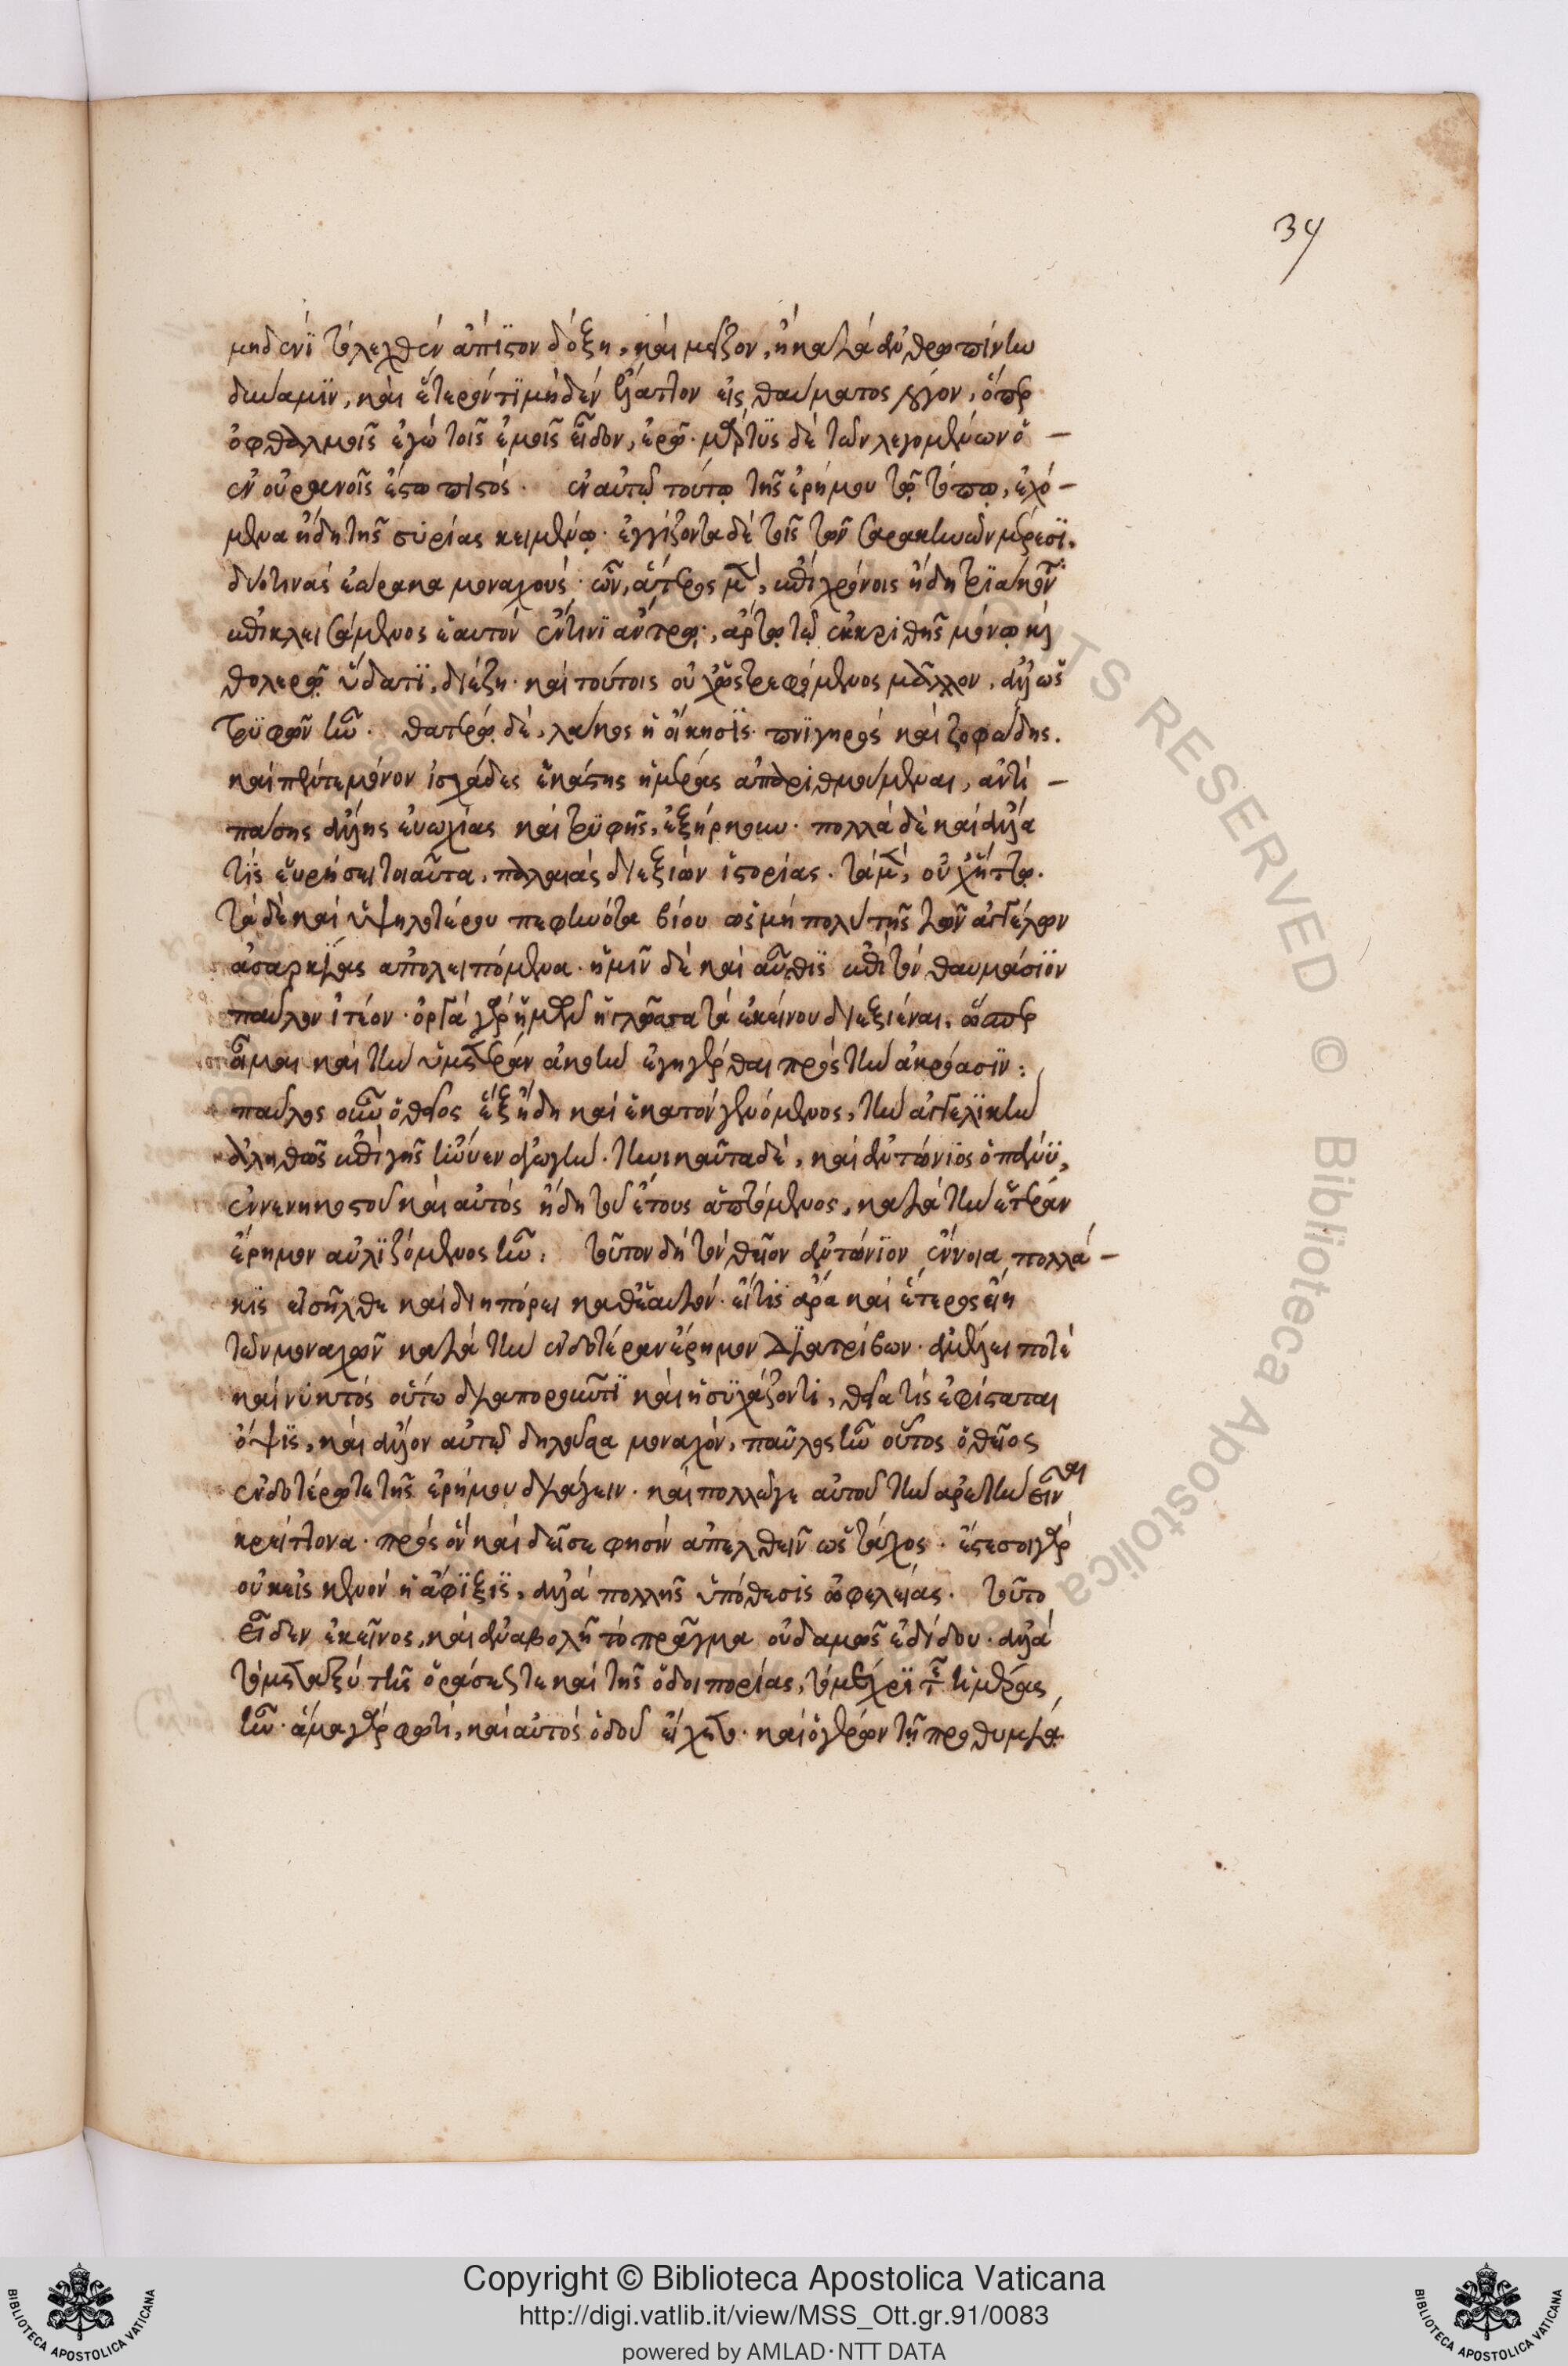 34
μηδενὶ τὸ λεχθὲν ἄπιστον δόξῃ, καὶ μεῖζον, ἢ κατὰ ἀνθρωπίνην
δύναμιν, καὶ ἕτερόν τι μηδὲν ἔλαττον εἰς θαύματος λόγον, ὅπερ
ὀφθαλμοῖς ἐγὼ τοῖς ἐμοῖς εἶδον, ἐρῶ. μάρτυς δὲ τῶν λεγομένων ὁ —
ἐν οὐρανοῖς ἔστω πιστός. ἐν αὐτῷ τούτῳ τῆς ἐρήμου τῷ τόπῳ, ἐχό—
μενα ἤδη τῆς συρίας κειμένῳ. ἐγγίζοντα δὲ τοῖς τῶν σαρακηνῶν μέρεσι.
δύο τινὰς ἑώρακα μοναχούς. ὧν, ἅτερος μὲν, ἐπὶ χρόνοις ἤδη τριάκοντα
ἐπικλεισάμενος ἑαυτὸν ἔν τινι ἄντρῳ, ἄρτῳ τῷ ἐκ κριθῆς μόνῳ καὶ
θολερῷ ὕδατι, διέζη. καὶ τούτοις οὐχ ὡς τρεφόμενος μᾶλλον, ἀλλ' ὡς
τρυφῶν ἦν. θατέρῳ δὲ, λάκκος ἡ οἴκησις. πνιγηρὸς καὶ ζοφώδης.
καὶ πέντε μόνον ἰσχάδες ἑκάστης ἡμέρας ἀπαριθμούμεναι, ἀντὶ —
πάσης ἄλλης εὐωχίας καὶ τρυφῆς, ἐξήρκουν. πολλὰ δὲ καὶ ἄλλα
τίς εὑρήσει τοιαῦτα, παλαιὰς διεξιὼν ἱστορίας. τὰ μὲν, οὐχ ἥττω.
τὰ δὲ καὶ ὑψηλοτέρου πεφηνότα βίου ὡς μὴ πολὺ τῆς τῶν ἀγγέλων
ἀσαρκίας ἀπολειπόμενα. ἡμῖν δὲ καὶ αὖθις ἐπὶ τὸν θαυμάσιον
παῦλον ἰτέον. ὀργᾷ γὰρ ἡμῶν ἡ γλῶσσα τὰ ἐκείνου διεξιέναι. ὥσπερ
οἶμαι καὶ τὴν ὑμετέραν ἀκοὴν ἐγηγέρθαι πρὸς τὴν ἀκρόασιν:
παῦλος οὖν ὁ θεῖος ἐξ ἤδη καὶ ἑκατὸν γενόμενος, τὴν ἀγγελικὴν
ἀληθῶς ἐπὶ γῆς ἤνυεν ἀγωγήν. τηνικαῦτα δὲ, καὶ ἀντώνιος ὁ πάνυ,
ἐννενηκοστοῦ καὶ αὐτὸς ἤδη τοῦ ἔτους ἁπτόμενος, κατὰ τὴν ἑτέραν
ἔρημον αὐλιζόμενος ἦν. τοῦτον δὴ τὸν θεῖον ἀντώνιον, ἔννοια πολλά—
κις εἰσῆλθε καὶ διηπόρει καθ' ἑαυτόν. εἴ τις ἄρα καὶ ἕτερος εἴη
τῶν μοναχῶν κατὰ τὴν ἐνδοτέραν ἔρημον διατρίβων. ἀμέλει ποτὲ
καὶ νυκτὸς οὕτω διαποροῦντι καὶ ἡσυχάζοντι, θεία τις ἐφίσταται
ὄψις, καὶ ἄλλον αὐτῷ δηλοῦσα μοναχόν, παῦλος ἦν οὗτος ὁ θεῖος
ἐνδοτέρω τε τῆς ἐρήμου διάγειν. καὶ πολλῷ γε αὐτοῦ τὴν ἀρετὴν εἶναι
κρείττονα. πρὸς ὃν καὶ δεῖ σε φησὶν ἀπελθεῖν ὡς τάχος. ἔσται σοι γὰρ
οὐκ εἰς κενὸν ἡ ἄφιξις, ἀλλὰ πολλῆς ὑπόθεσις ὠφελείας. τοῦτο
εἶδεν ἐκεῖνος, καὶ ἀναβολῇ τὸ πρᾶγμα οὐδαμῶς ἐδίδου. ἀλλὰ
τὸ μεταξὺ τῆς ὁράσεώς τε καὶ τῆς ὁδοιπορίας, τὸ μέχρι τῆς ἡμέρας
ἦν. ἅμα γὰρ φωτὶ, καὶ αὐτὸς ὁδοῦ εἴχετο. καὶ ὁ γέρων τῇ προθυμίᾳ
Copyright © Biblioteca Apostolica Vaticana
http://digi.vatlib.it/view/MSS_Ott.gr.91/0083
powered by AMLAD·NTT DATA